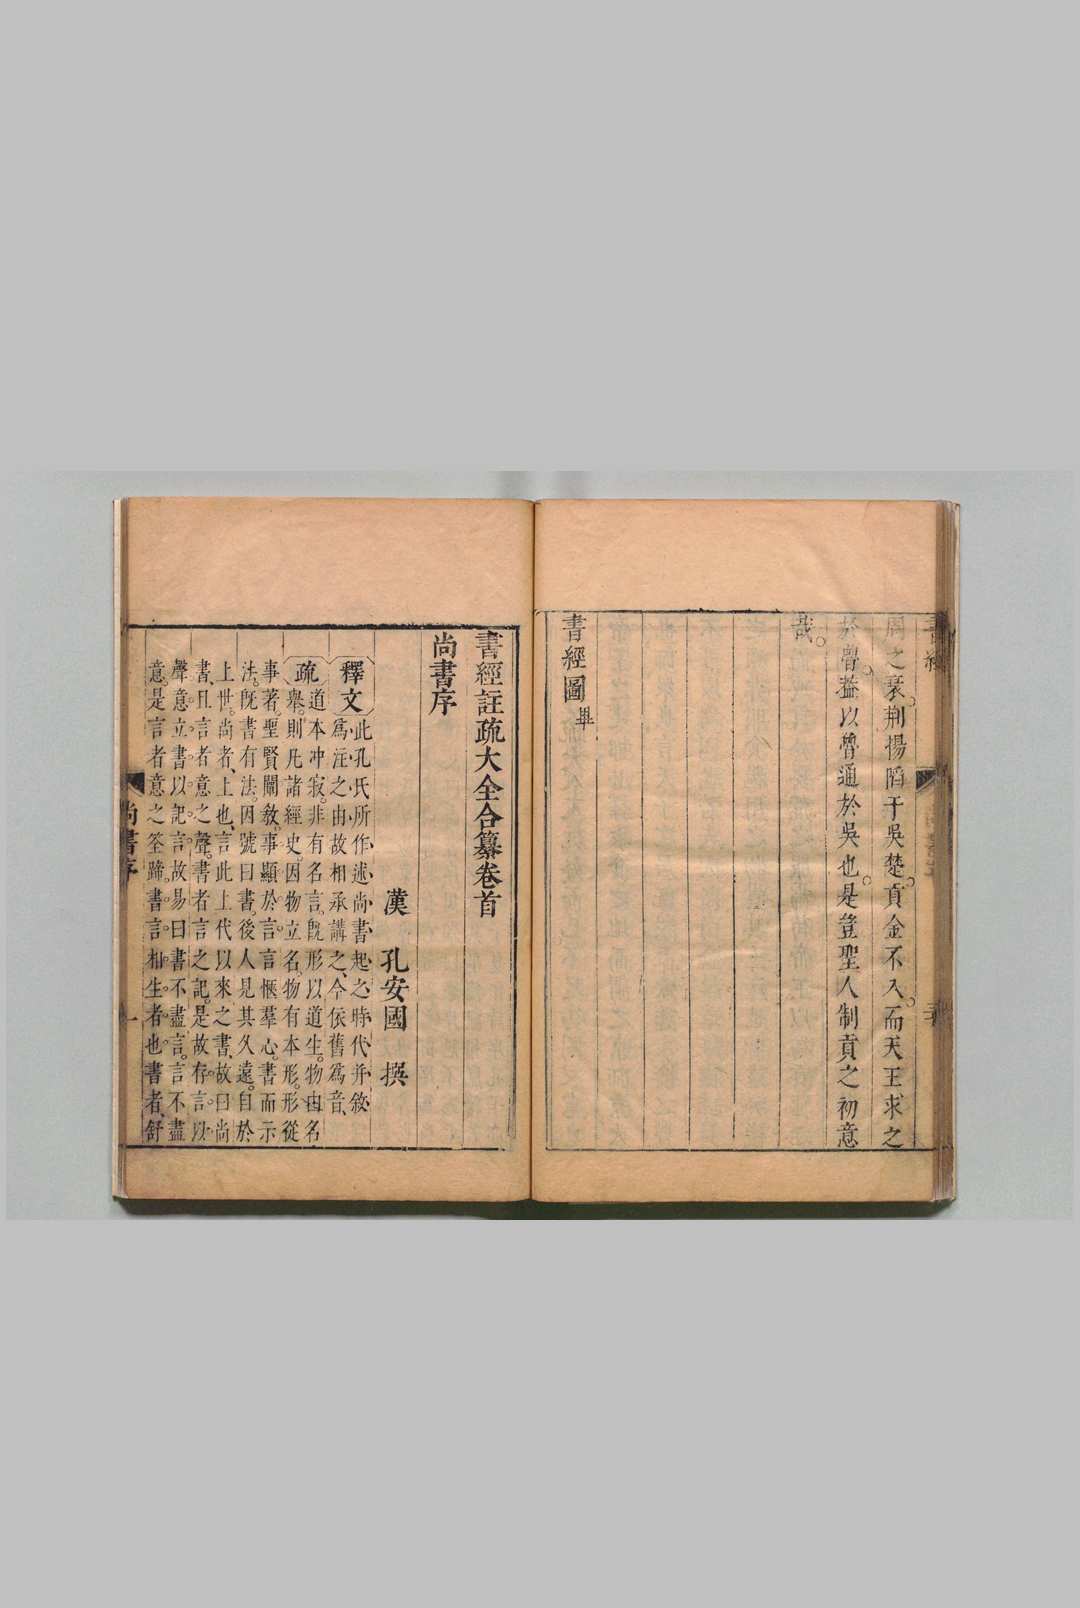 周之衰荆揚陷于吳楚。貢金不入。而天王求之
於魯。葢以魯通於吳也。是豈聖人制貢之初意
哉。
書經圖畢
書經註疏大全合纂卷首
尚書序
漢 孔安國 撰
釋文 此孔氏所作述尚書起之時代并敘
爲注之由故相承講之今依舊爲音
疏 道本冲寂。非有名言。既形以道生。物由名
舉。則凡諸經史。因物立名。物有本形。形從
事著。聖賢闡教。事顯於言。言愜羣心。書而示
法。既書有法。因號曰書。後人見其久遠。自於
上世。尚者、上也、言此上代以來之書、故曰尚
書、且言者意之聲。書者言之記。是故存言。以
聲意。立書。以記言。故易曰。書不盡言。言不盡
意。是言者意之筌蹄。書言。相生者。也書者、舒
尚書序
一